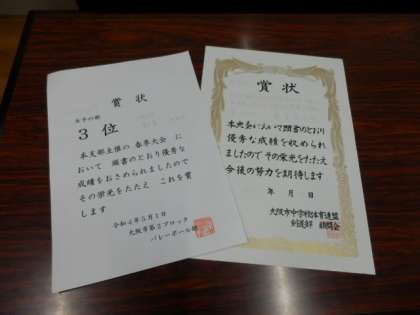 賞状
女子の部
3位
本支部主催の 春季大会 に
おいて 頭書のとおり優秀な
成績をおさめられましたので
その栄光をたたえ これを賞
します
令和4年5月1日
大阪市第2ブロック
バレーボール部
賞状
本大会において頭書のとおり
優秀な成績を収められ
ましたのでその栄光をたたえ
今後の努力を期待します
年 月 日
大阪市中学校体育連盟
剣道部 顧問会